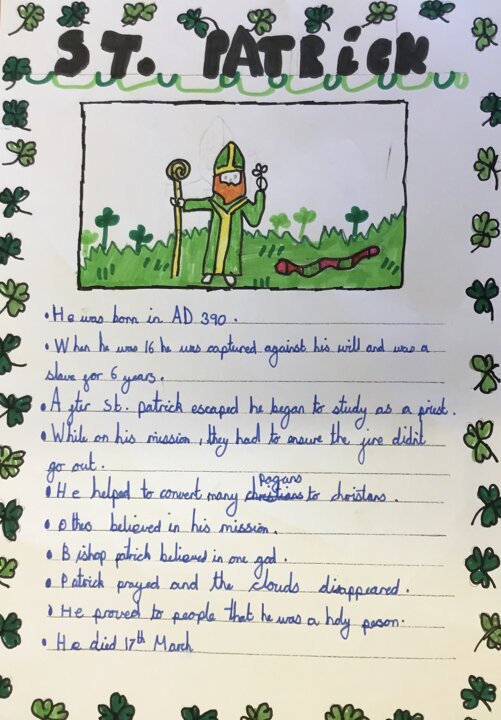 ST. PATRICK
• He was born in AD 390.
• When he was 16 he was captured against his will and was a
slave for 6 years.
• After St. Patrick escaped he began to study as a priest.
• While on his mission, they had to ensure the fire didn't
go out.
• He helped to convert many christians Pagans to christans.
• Othes believed in his mission.
• Bishop patrick believed in one god.
• Patrick prayed and the clouds disappeared.
• He proved to people that he was a holy person.
• He died 17th March